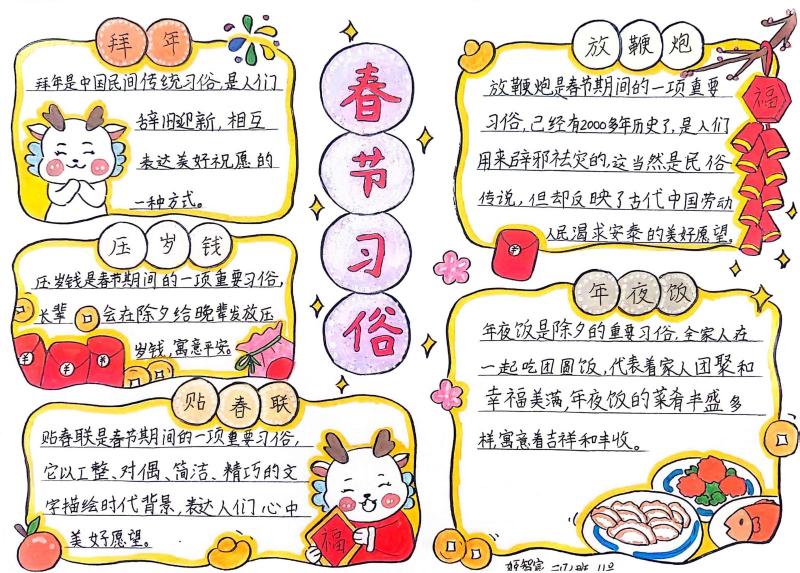 春节习俗
拜年
拜年是中国民间传统习俗,是人们
辞旧迎新,相互
表达美好祝愿的
一种方式。
压岁钱
压岁钱是春节期间的一项重要习俗,
长辈会在除夕给晚辈发放压
岁钱,寓意平安。
贴春联
贴春联是春节期间的一项重要习俗,
它以工整、对偶、简洁、精巧的文
字描绘时代背景,表达人们心中
美好愿望。
福
放鞭炮
放鞭炮是春节期间的一项重要
习俗,已经有2000多年历史了,是人们
用来辟邪祛灾的,这当然是民俗
传说,但却反映了古代中国劳动
人民渴求安泰的美好愿望。
福
年夜饭
年夜饭是除夕的重要习俗,全家人在
一起吃团圆饭,代表着家人团聚和
幸福美满,年夜饭的菜肴丰盛多
样,寓意着吉祥和丰收。